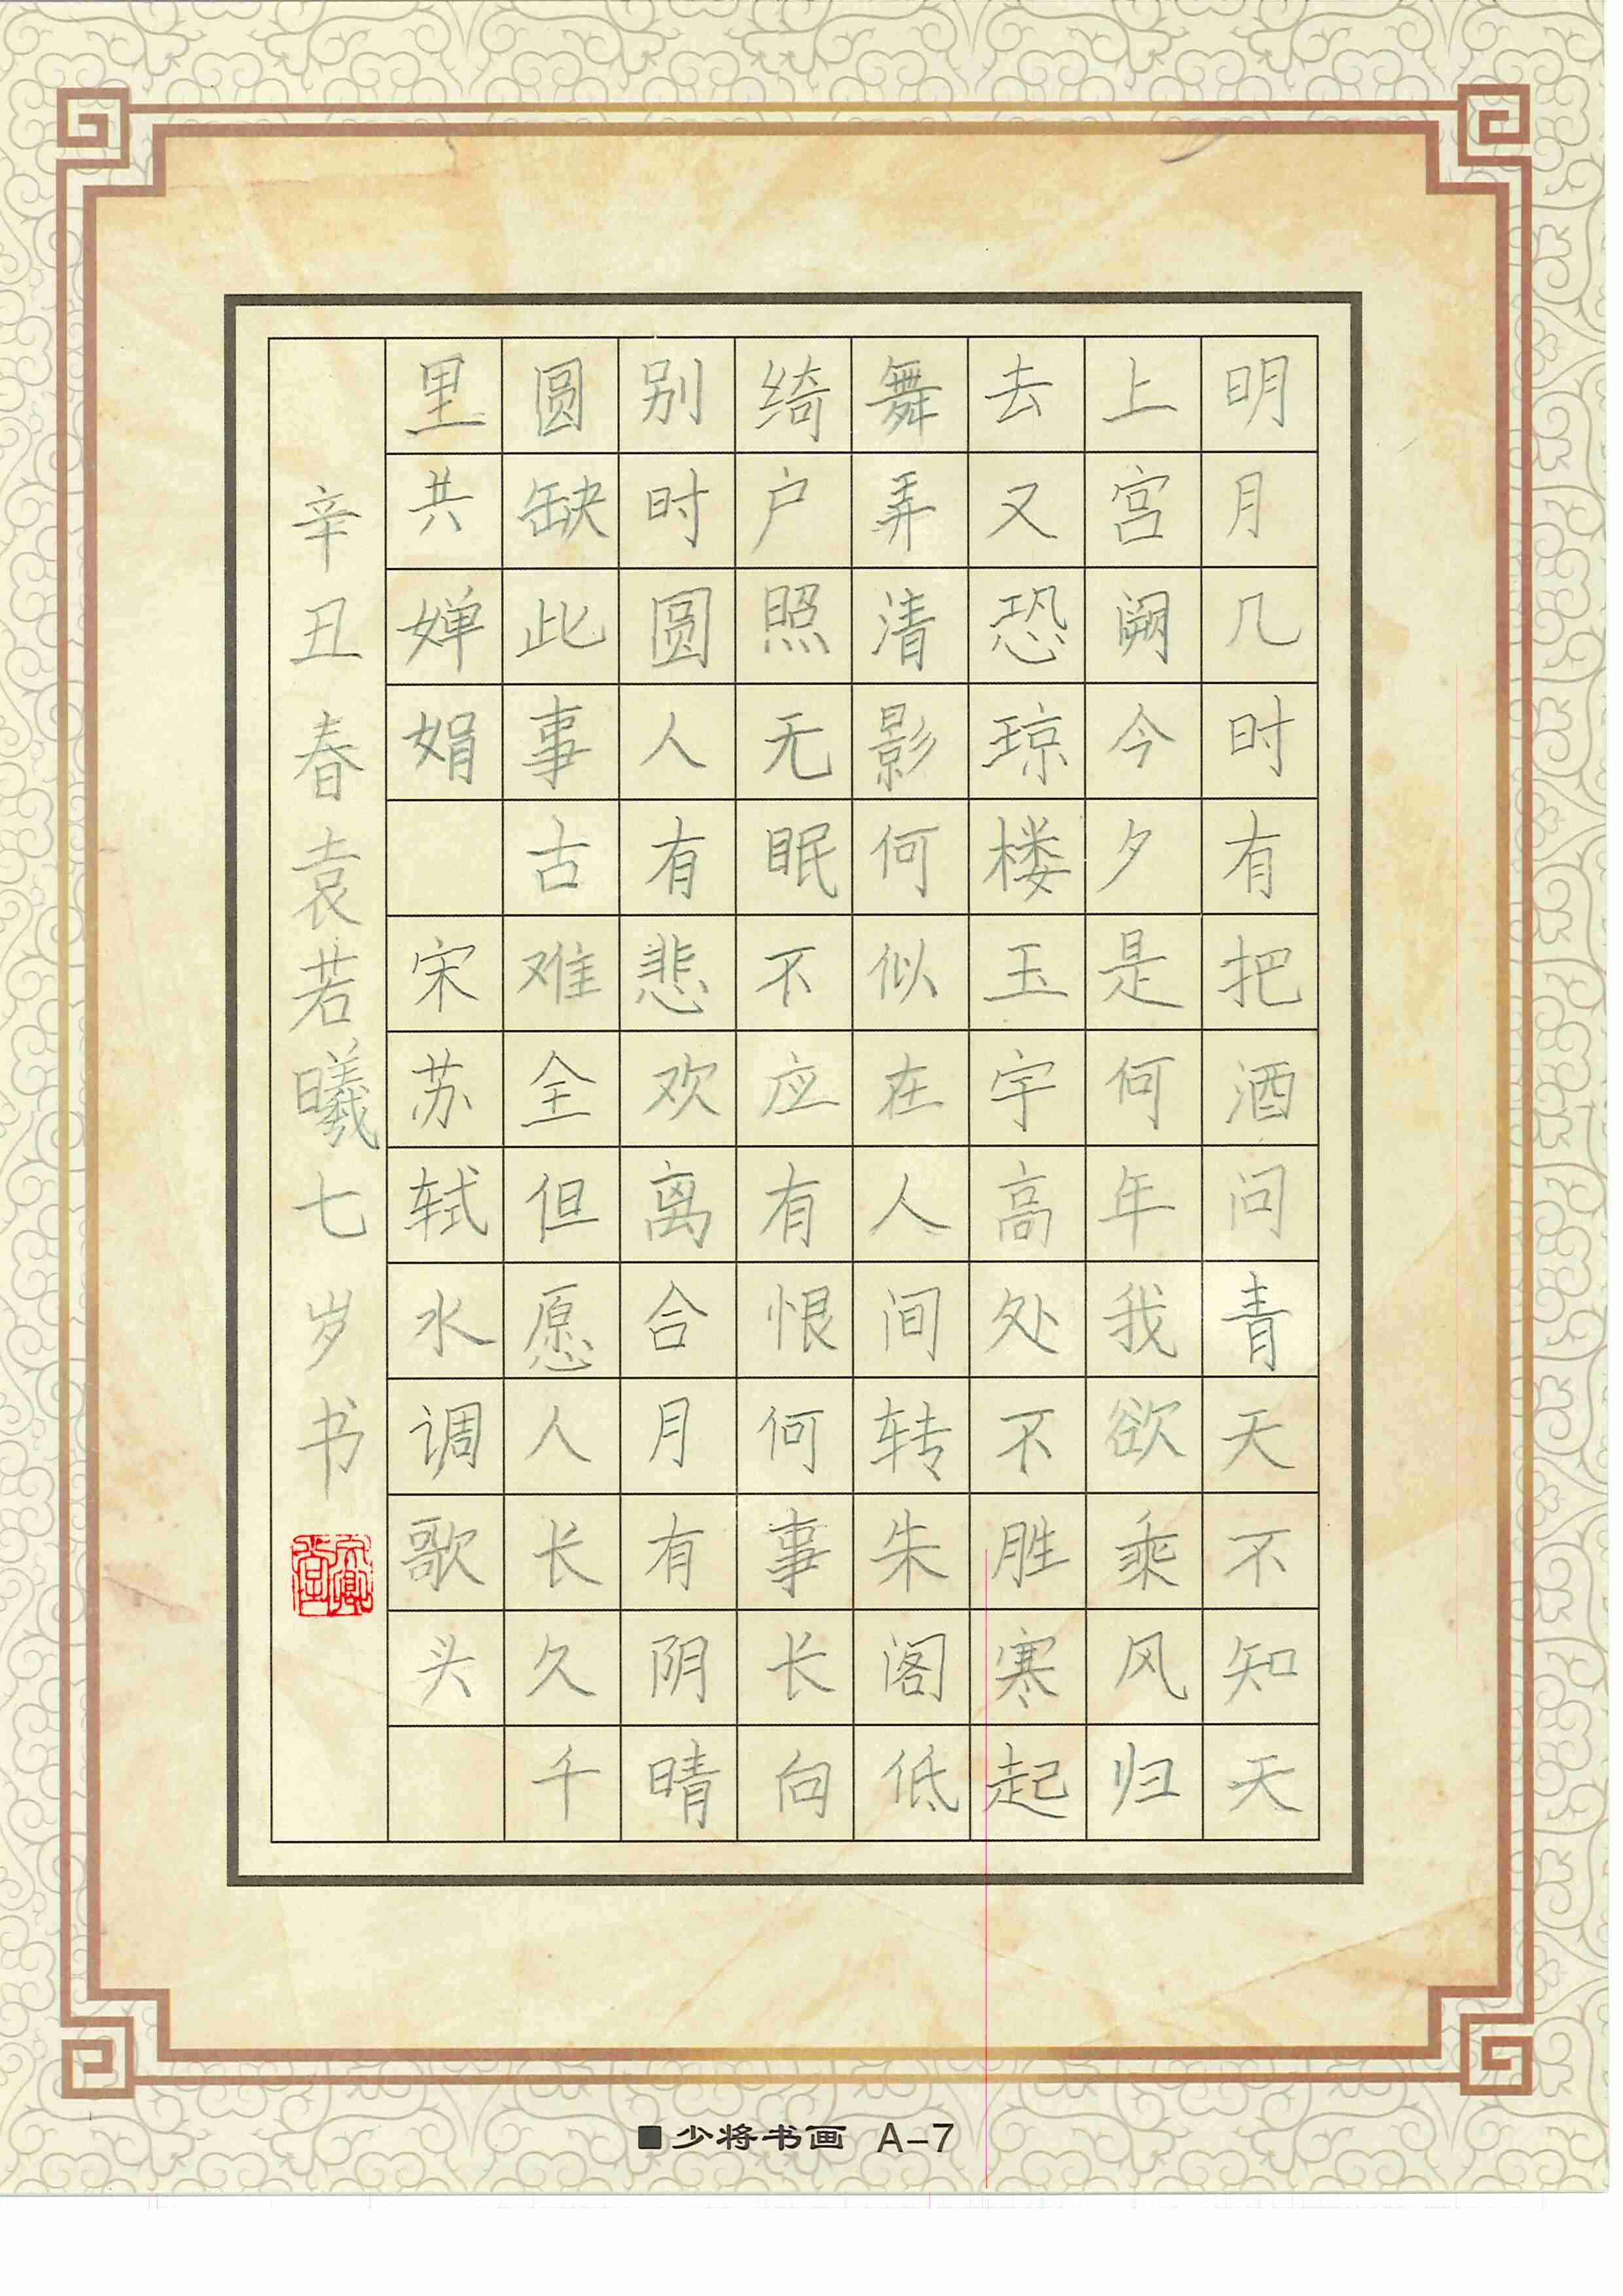 明月几时有把酒问青天不知天
上宫阙今夕是何年我欲乘风归
去又恐琼楼玉宇高处不胜寒起
舞弄清影何似在人间转朱阁低
绮户照无眠不应有恨何事长向
别时圆人有悲欢离合月有阴晴
圆缺此事古难全但愿人长久千
里共婵娟 宋苏轼水调歌头
辛丑春袁若曦七岁书
■少将书画 A-7